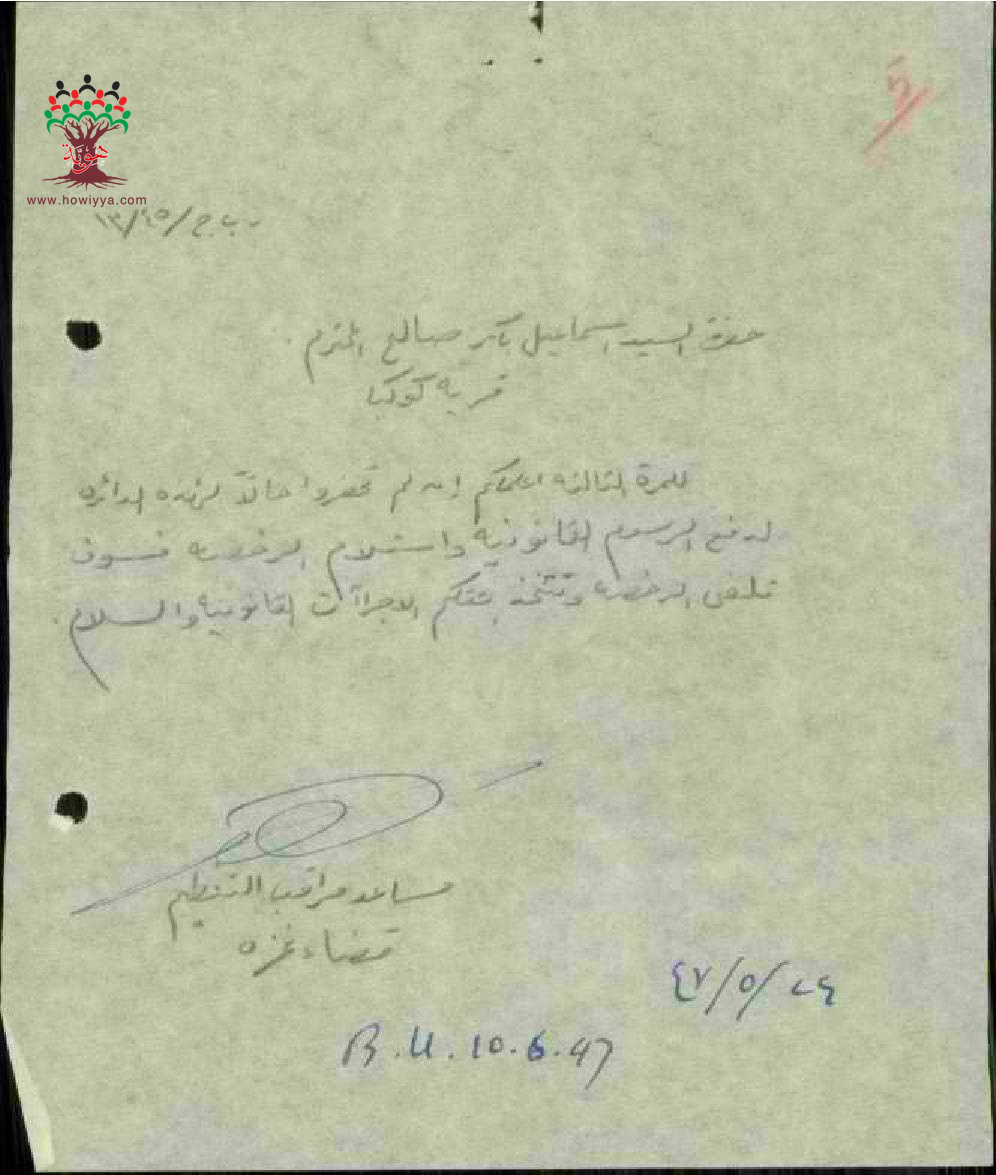 هوية
www.howiyya.com
ب ج/٤٥/١٣
حضرة السيد اسماعيل بكر صالح المحترم.
قرية كوكبا
للمرة الثالثه اعلمكم إن لم تحضروا حالاً لهذه الدائره
لدفع الرسوم القانونيه واستلام الرخصه فسوف
تلغى الرخصه وتتخذ بحقكم الاجراآت القانونيه والسلام.
مساعد مراقب التنظيم
قضاء غزه
٢٤/٥/٤٧
B.U. 10.6.47